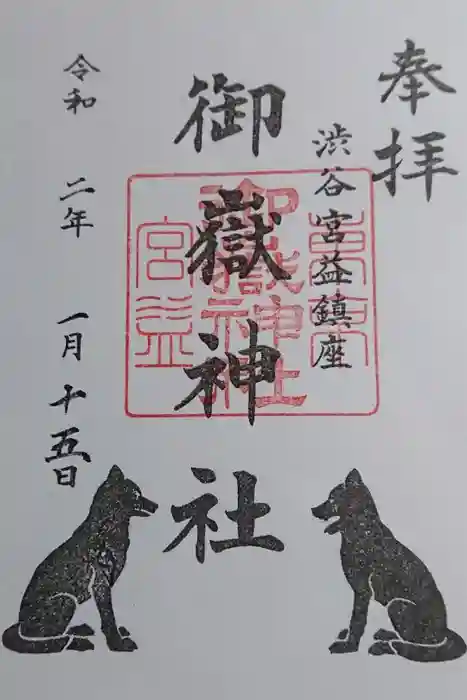 奉拝
渋谷宮益鎮座
御嶽神社
令和二年一月十五日
御嶽神社
宮益